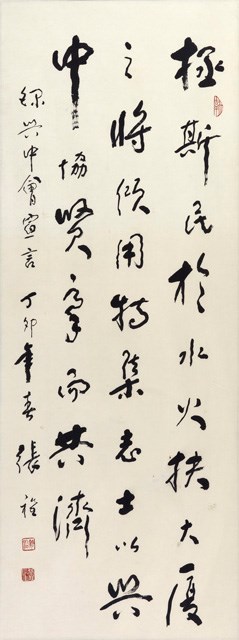 拯斯民於水火扶大廈
之將傾用特集志士以興
中協賢豪而共濟
錄興中會宣言 丁卯年春 張